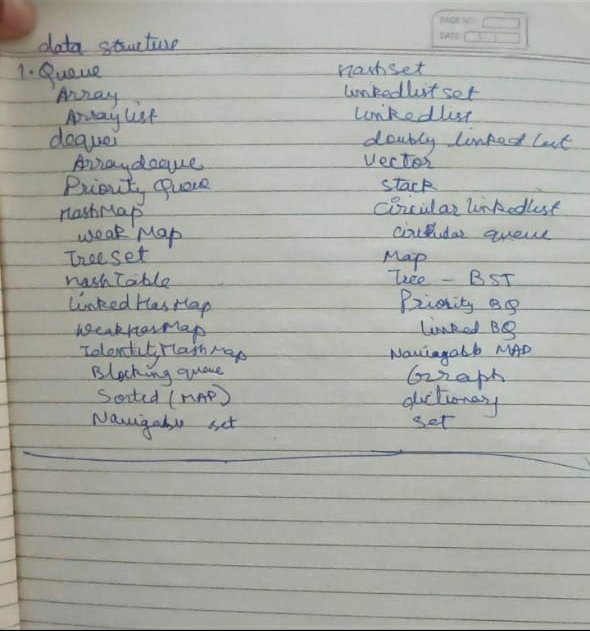 PAGE NO.
DATE
data structure
1. Queue
Array
Array list
deque
Arraydeque
Priority Queue
HashMap
weak Map
Tree set
hashTable
Linked Has Map
WeakHasMap
IdentityHashMap
Blocking queue
Sorted (MAP)
Navigable set
HashSet
linkedlist set
linkedlist
doubly linked list
vector
stack
Circular linkedlist
circular queue
Map
Tree - BST
Priority BQ
linked BQ
Navigable MAP
Graph
dictionary
set